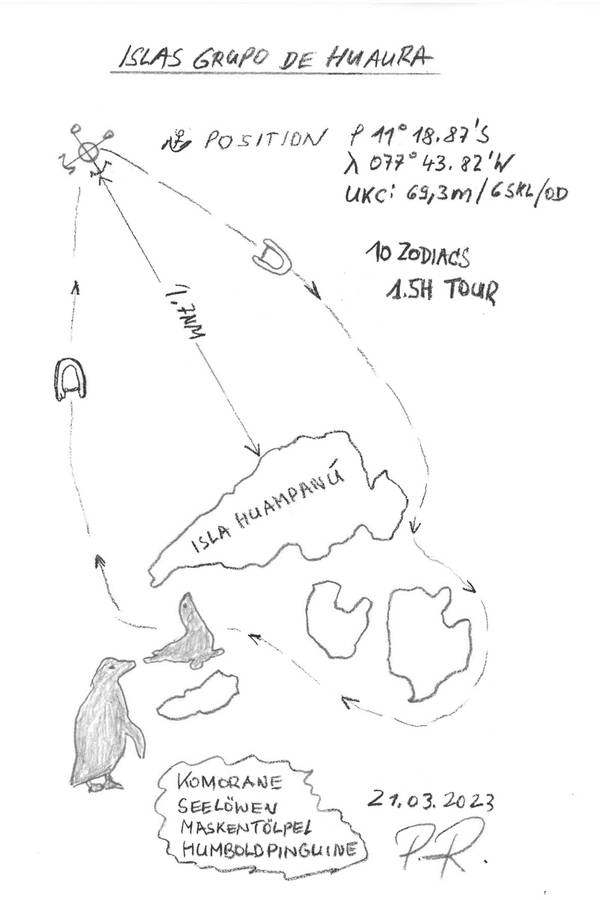 ISLAS GRUPO DE HUAURA
POSITION
φ 11° 18.87'S
λ 077° 43.82'W
UKC: 69,3m / 6 SKL/OD
10 ZODIACS
1.5H TOUR
1.7NM
ISLA HUAMPANÚ
KOMORANE
SEELÖWEN
MASKENTÖLPEL
HUMBOLDPINGUINE
21.03.2023
P.R.